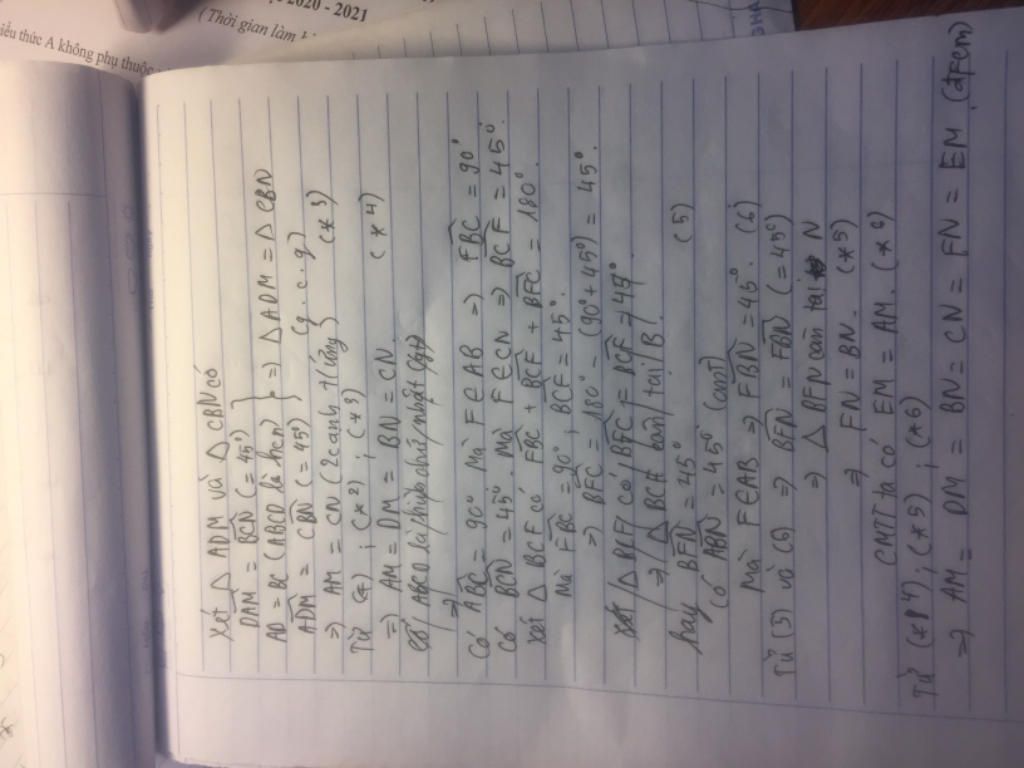 2020 - 2021
(Thời gian làm
iểu thức A không phụ thuộc
Xét Δ ADM và Δ CBN có
DAM = BCN (= 45°)
AD = BC (ABCD là hcn) } => Δ ADM = Δ CBN
ADM = CBN (= 45°) (g.c.g)
=> AM = CN (2 cạnh t/ứng) (*3)
Từ (*2) ; (*3)
=> AM = DM = BN = CN (*4)
ABCD là hình chữ nhật (gt)
=>
Có ABC = 90° Mà F ∈ AB => FBC = 90°
Có BCN = 45° Mà F ∈ CN => BCF = 45°.
Xét Δ BCF có FBC + BCF + BFC = 180°.
Mà FBC = 90° ; BCF = 45°.
=> BFC = 180° - (90° + 45°) = 45°.
Δ BCF có BFC = BCF = 45°
=> Δ BCF cân tại B.
hay BFN = 45° (5)
Có ABN = 45° (cmt)
Mà F ∈ AB => FBN = 45°. (6)
Từ (5) và (6) => BFN = FBN (= 45°)
=> Δ BFN cân tại N
=> FN = BN. (*5)
CMTT ta có EM = AM. (*6)
Từ (*4) ; (*5) ; (*6)
=> AM = DM = BN = CN = FN = EM (đpcm)